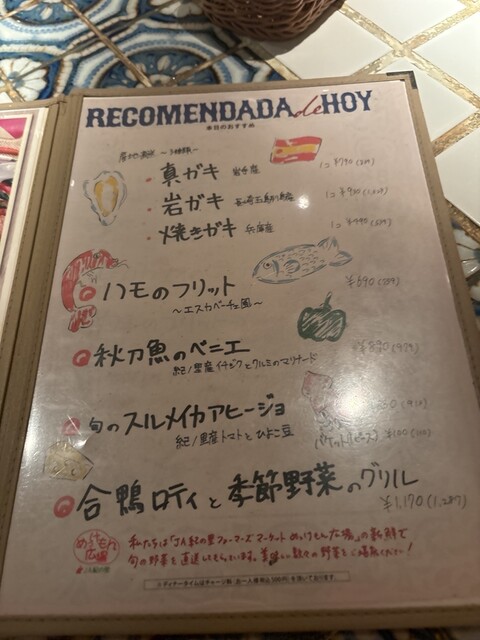 RECOMENDADA de HOY
本日のおすすめ
産地直送 〜3種類〜
・真ガキ 岩手産 1コ ¥790
・岩ガキ 1コ ¥930
・焼きガキ 兵庫産 1コ
ハモのフリット ¥690
〜エスカベーチェ風〜
秋刀魚のベニエ
紀ノ里産イチジクとクルミのマリナード
旬のスルメイカアヒージョ
紀ノ里産トマトとひよこ豆
合鴨ロティと季節野菜のグリル
¥1,170 (1,287)
めっけもん広場
私たちは「JA紀の里ファーマーズマーケットめっけもん広場」の新鮮で
旬の野菜を直送してもらっています。美味しい数々の野菜をご堪能ください!
※ディナータイムはチャージ料 お一人様税込300円を頂いております。